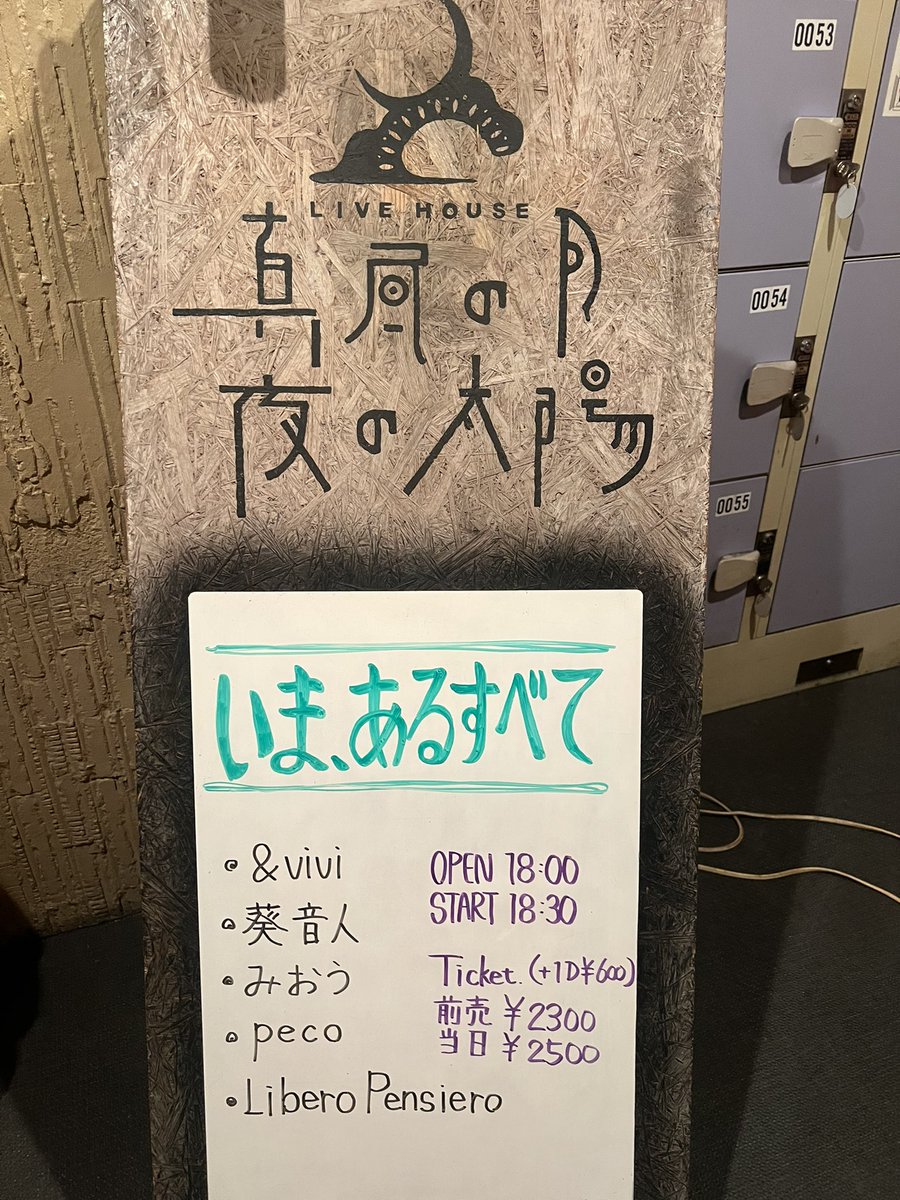 LIVE HOUSE
真昼の月
夜の太陽
いま、あるすべて
・&vivi
・葵音人
・みおう
・peco
・Libero Pensiero
OPEN 18:00
START 18:30
Ticket.(+1D¥600)
前売 ¥2300
当日 ¥2500
0053
0054
0055